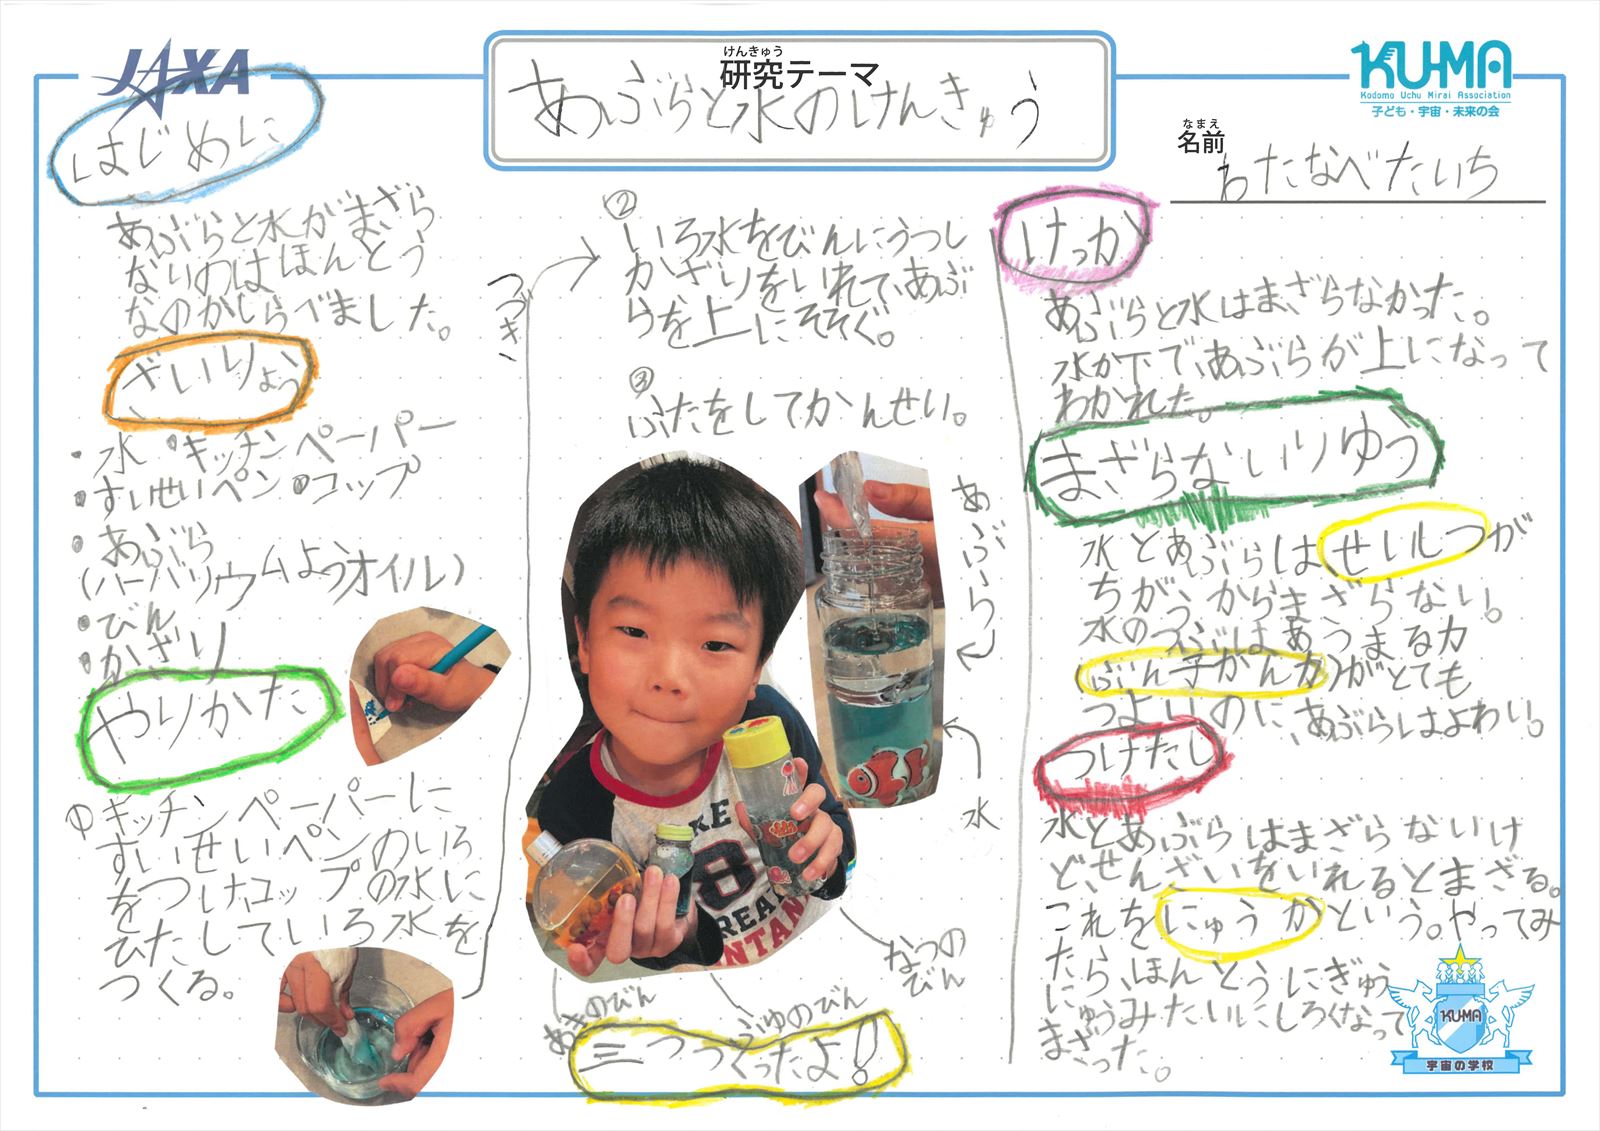 JAXA
けんきゅう
研究テーマ
あぶらと水のけんきゅう
KU-MA
Kodomo Uchu Mirai Association
子ども・宇宙・未来の会
なまえ
名前
わたなべたいち
はじめに
あぶらと水がまざら
ないのはほんとう
なのかしらべました。
ざいりょう
・水 ・キッチンペーパー
・すいせいペン ・コップ
・あぶら
(ハーバリウムようオイル)
・びん
・かざり
やりかた
①キッチンペーパーに
すいせいペンのいろ
をつけコップの水に
ひたしていろ水を
つくる。
つづき
②
いろ水をびんにうつし
かざりをいれて、あぶ
らを上にそそぐ。
③
ふたをしてかんせい。
あぶら
水
なつの
びん
あきのびん
ふゆのびん
三つつくったよ!
けっか
あぶらと水はまざらなかった。
水が下であぶらが上になって
わかれた。
まざらないりゆう
水とあぶらはせいしつが
ちがうからまざらない。
水のつぶはあつまる力
(ぶん子かん力)がとても
つよいのに、あぶらはよわい。
つけたし
水とあぶらはまざらないけ
ど、せんざいをいれるとまざる。
これをにゅうかという。やってみ
たら、ほんとうにぎゅう
にゅうみたいにしろくなって
まざった。
KU-MA
宇宙の学校